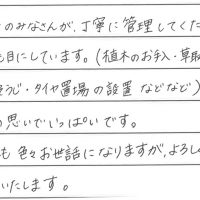 のみなさんが、丁寧に管理してくだ
目にしています。(植木のお手入・草取
うじ・タイヤ置場の設置 などなど)
思いでいっぱいです。
も 色々お世話になりますが、よろし
いたします。